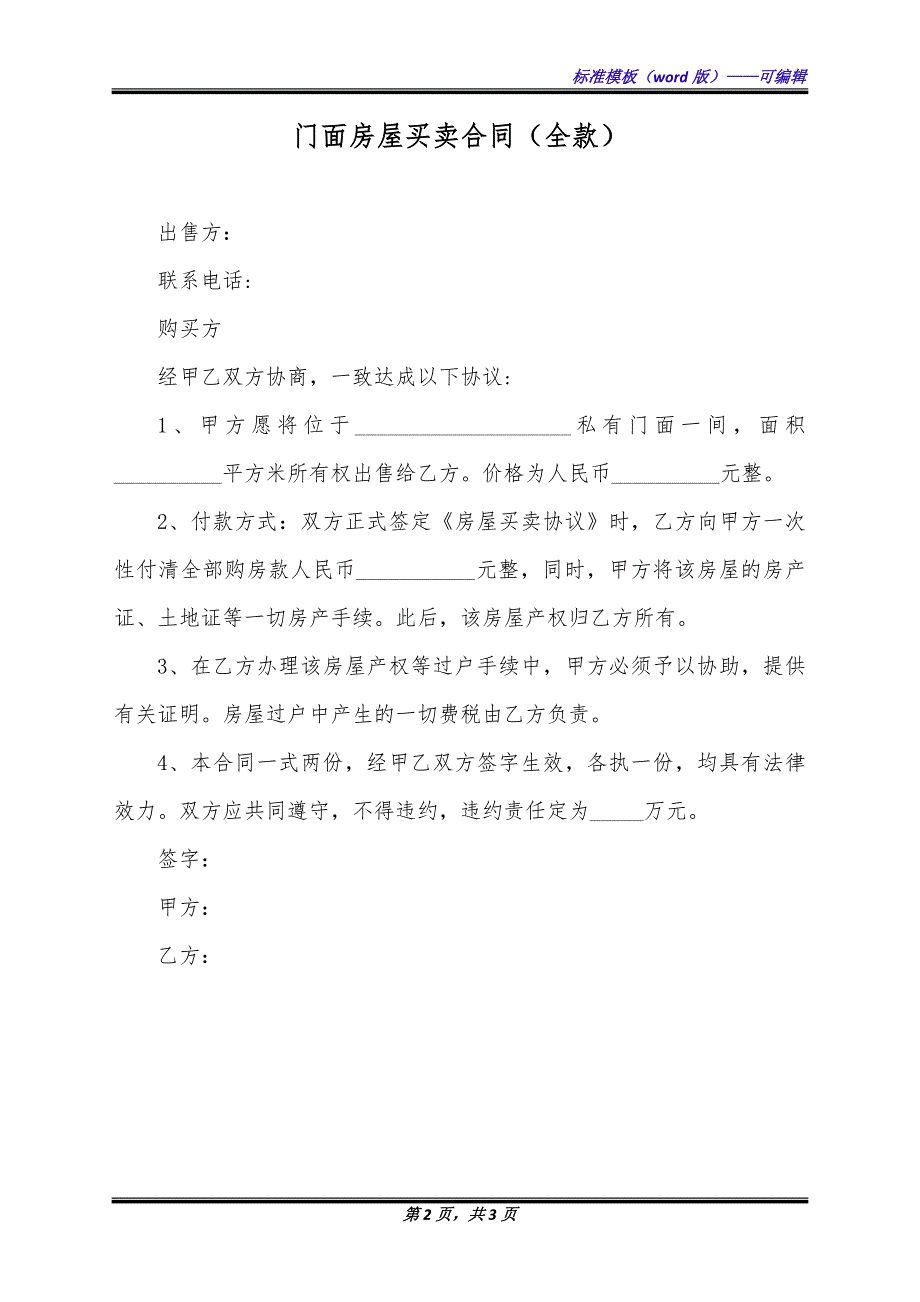 标准模板（word 版）——可编辑
门面房屋买卖合同（全款）
出售方：
联系电话:
购买方
经甲乙双方协商，一致达成以下协议:
1、甲方愿将位于____________________私有门面一间，面积
__________平方米所有权出售给乙方。价格为人民币__________元整。
2、付款方式：双方正式签定《房屋买卖协议》时，乙方向甲方一次
性付清全部购房款人民币___________元整，同时，甲方将该房屋的房产
证、土地证等一切房产手续。此后，该房屋产权归乙方所有。
3、在乙方办理该房屋产权等过户手续中，甲方必须予以协助，提供
有关证明。房屋过户中产生的一切费税由乙方负责。
4、本合同一式两份，经甲乙双方签字生效，各执一份，均具有法律
效力。双方应共同遵守，不得违约，违约责任定为_____万元。
签字：
甲方：
乙方：
第 2 页，共 3 页